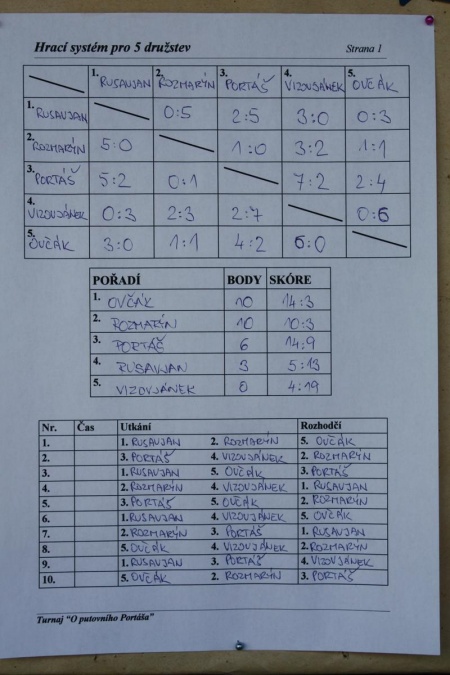 Hrací systém pro 5 družstev Strana 1
1. RUSAVJAN 2. ROZMARÝN 3. PORTÁŠ 4. VIZOVJÁNEK 5. OVČÁK
1. RUSAVJAN 0:5 2:5 3:0 0:3
2. ROZMARÝN 5:0 1:0 3:2 1:1
3. PORTÁŠ 5:2 0:1 7:2 2:4
4. VIZOVJÁNEK 0:3 2:3 2:7 0:6
5. OVČÁK 3:0 1:1 4:2 6:0
POŘADÍ BODY SKÓRE
1. OVČÁK 10 14:3
2. ROZMARÝN 10 10:3
3. PORTÁŠ 6 14:9
4. RUSAVJAN 3 5:13
5. VIZOVJÁNEK 0 4:19
Nr. Čas Utkání Rozhodčí
1. 1. RUSAVJAN 2. ROZMARÝN 5. OVČÁK
2. 3. PORTÁŠ 4. VIZOVJÁNEK 2. ROZMARÝN
3. 1. RUSAVJAN 5. OVČÁK 3. PORTÁŠ
4. 2. ROZMARÝN 4. VIZOVJÁNEK 1. RUSAVJAN
5. 3. PORTÁŠ 5. OVČÁK 2. ROZMARÝN
6. 1. RUSAVJAN 4. VIZOVJÁNEK 5. OVČÁK
7. 2. ROZMARÝN 3. PORTÁŠ 1. RUSAVJAN
8. 5. OVČÁK 4. VIZOVJÁNEK 2. ROZMARÝN
9. 1. RUSAVJAN 3. PORTÁŠ 4. VIZOVJÁNEK
10. 5. OVČÁK 2. ROZMARÝN 3. PORTÁŠ
Turnaj "O putovního Portáša"